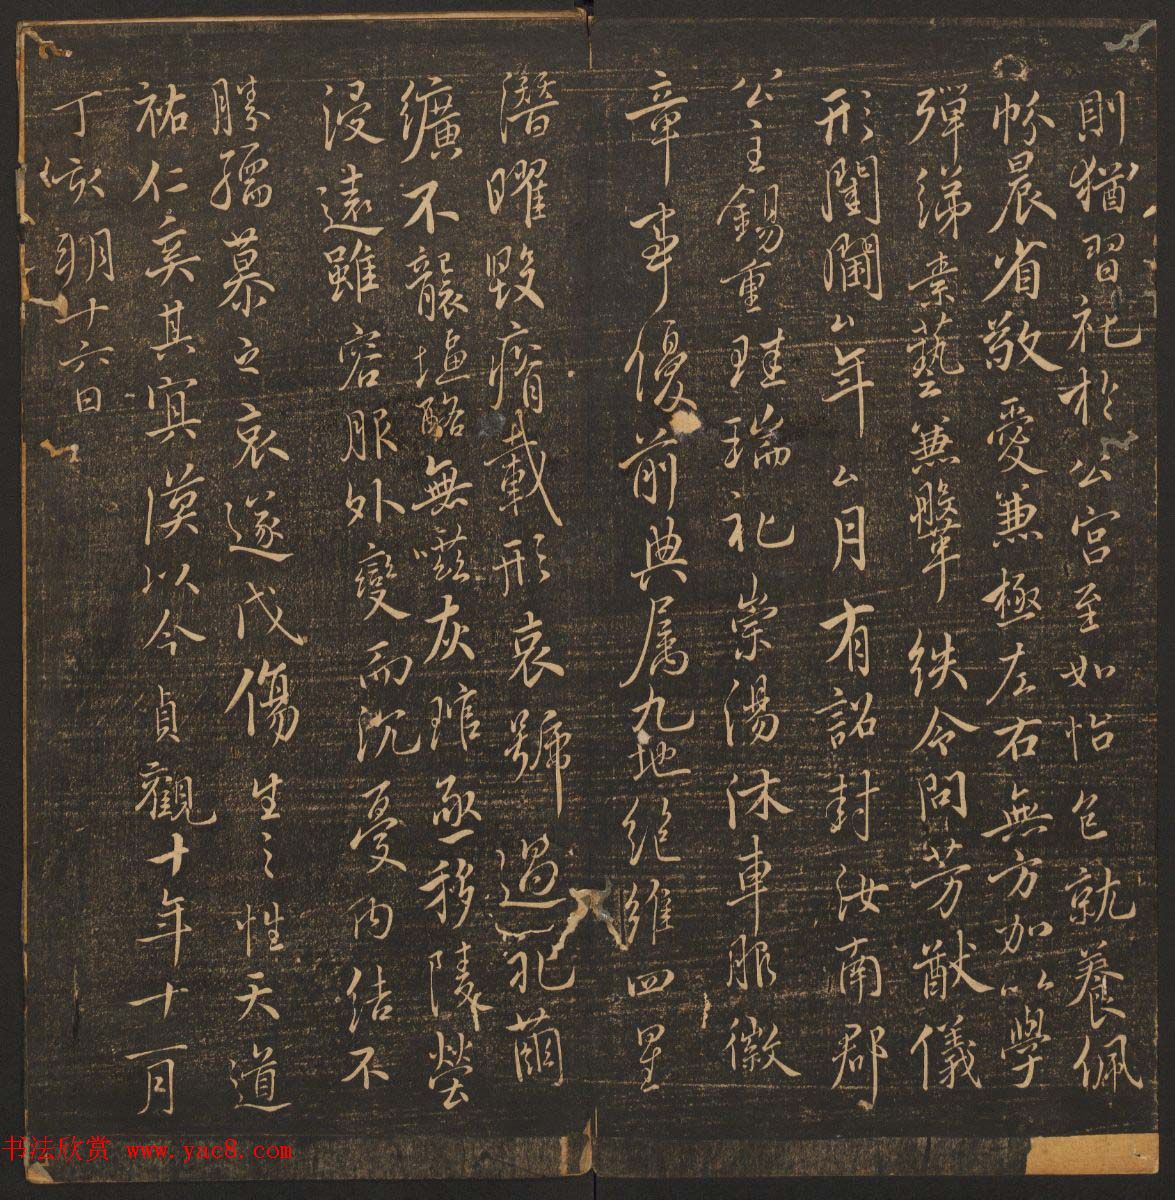 則猶習礼於公宮至如怡色就養佩
帉晨省敬愛兼極左右無方加以學
彈綈素藝兼鞶紩令問芳猷儀
形閨閫ム年ム月有詔封汝南郡
公主錫重珪瑞礼崇湯沐車服徽
章事優前典属九地絕維四星
潛曜毀瘠載形哀號過礼繭
纊不襲塩酪無嗞灰琯亟移陵塋
浸遠雖容服外變而沉憂内結不
勝孺慕之哀遂戊傷生之性天道
祐仁奚其冥漠以今貞觀十年十一月
丁亥朔十六日
书法欣赏 www.yac8.com